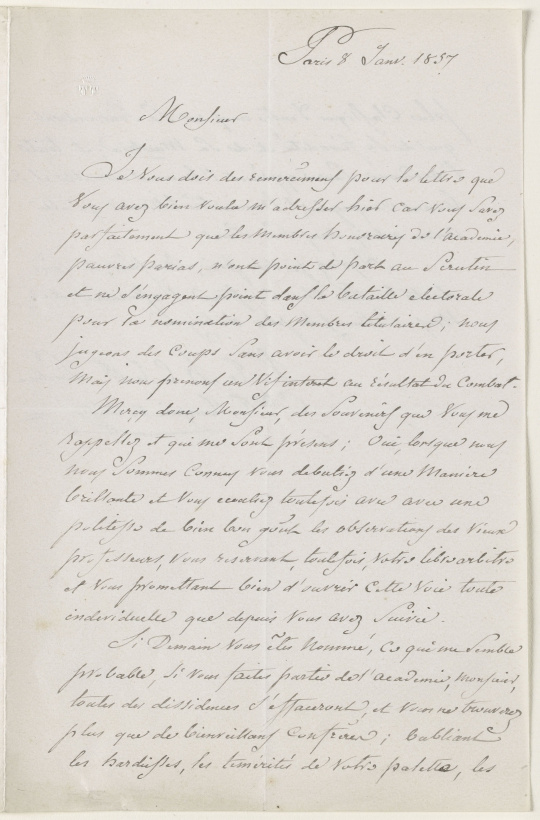 Paris 8 Janv. 1857
Monsieur
Je Vous dois des remerciemens pour la lettre que
Vous avez bien voulu m'adresser hier car Vous Savez
parfaitement que les Membres honoraires de l'académie,
pauvres parias, n'ont point de part au Scrutin
et ne S'engagent point dans la bataille electorale
pour la nomination des Membres titulaires; nous
jugeons des coups Sans avoir le droit d'en porter,
Mais nous prenons un Vif interet au résultat du Combat.
Mercy donc, Monsieur, des Souvenirs que Vous me
rappellez et qui me Sont présens; Oui, lorsque nous
nous Sommes Connus Vous debutiez d'une Maniere
brillante et Vous ecoutiez toutefois avec avec une
politesse de bien bon goût les observations des Vieux
professeurs, Vous reservant, toutefois, Votre libre arbitre
et Vous promettant bien d'ouvrir Cette Voie toute
individuelle que depuis Vous avez Suivie.
Si Demain Vous êtes Nommé, Ce qui me Semble
probable, Si Vous faites partie de l'académie, Monsieur,
toutes des dissidences S'effaceront, et Vous ne trouverez
plus que de bienveillans Confrères; oubliant
les hardiesses, les témérités de Votre palette, les